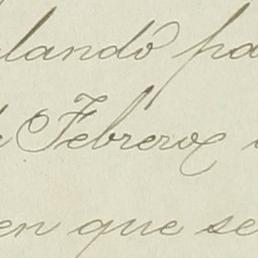 lando pa
Febrero
en que se